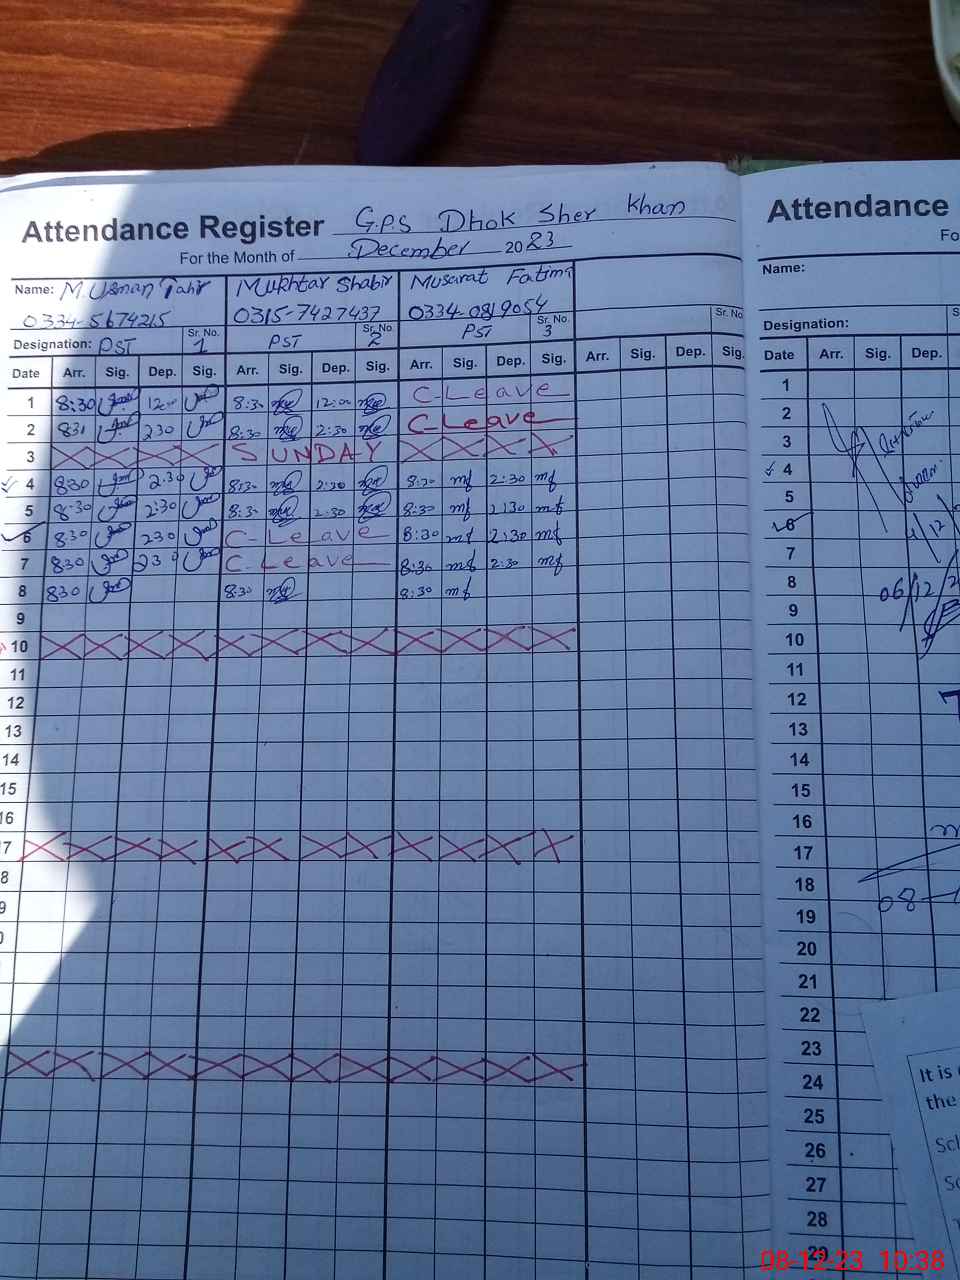 Attendance Register G.P.S Dhok Sher Khan
For the Month of December 2023
Name: M. Usman Tahir Mukhtar Shabir Musarat Fatima
0334-5674215 0315-7427437 0334-0819054
Designation: PST Sr. No. 1 PST Sr. No. 2 PST Sr. No. 3 Sr. No
Date Arr. Sig. Dep. Sig. Arr. Sig. Dep. Sig. Arr. Sig. Dep. Sig. Arr. Sig. Dep. Sig.
1 8:30 12:00 8:30 12:00 C-Leave
2 831 230 8:30 2:30 C-Leave
3 SUNDAY
4 830 2:30 8:30 2:30 8:30 mf 2:30 mf
5 8:30 2:30 8:30 2:30 8:30 mf 2:30 mf
6 830 230 C-Leave 8:30 mf 2:30 mf
7 830 230 C-Leave 8:30 mf 2:30 mf
8 830 8:30 8:30 mf
9
10
11
12
13
14
15
16
7
8
9
Attendance
Fo
Name:
Designation: S
Date Arr. Sig. Dep.
1
2
3
4
5
6
7
8 06/12/2
9
10
11
12
13
14
15
16
17
18
19 08
20
21
22
23
24
25
26
27
28
29
It is
the
Scl
Sc
08-12-23 10:38